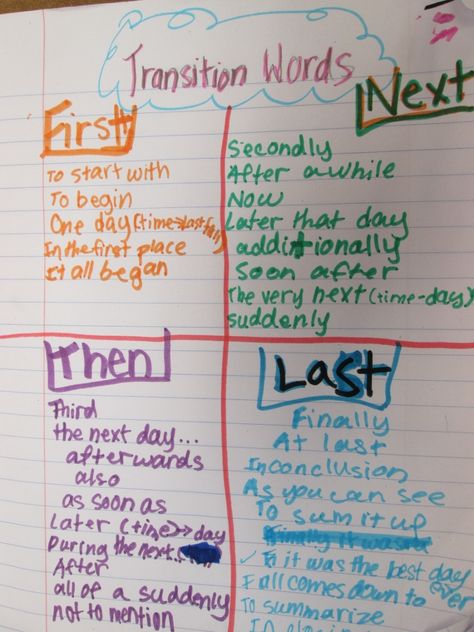 Transition Words
First
To start with
To begin
One day (time→last fall)
In the first place
It all began
Next
Secondly
After awhile
Now
Later that day
additionally
Soon after
The very next (time-day)
suddenly
Then
Third
the next day...
afterwards
also
as soon as
Later (time)→day
During the next
After
all of a suddenly
not to mention
Last
Finally
At last
Inconclusion
As you can see
To sum it up
Finally it was a
it was the best day ever
It all comes down to
To summarize